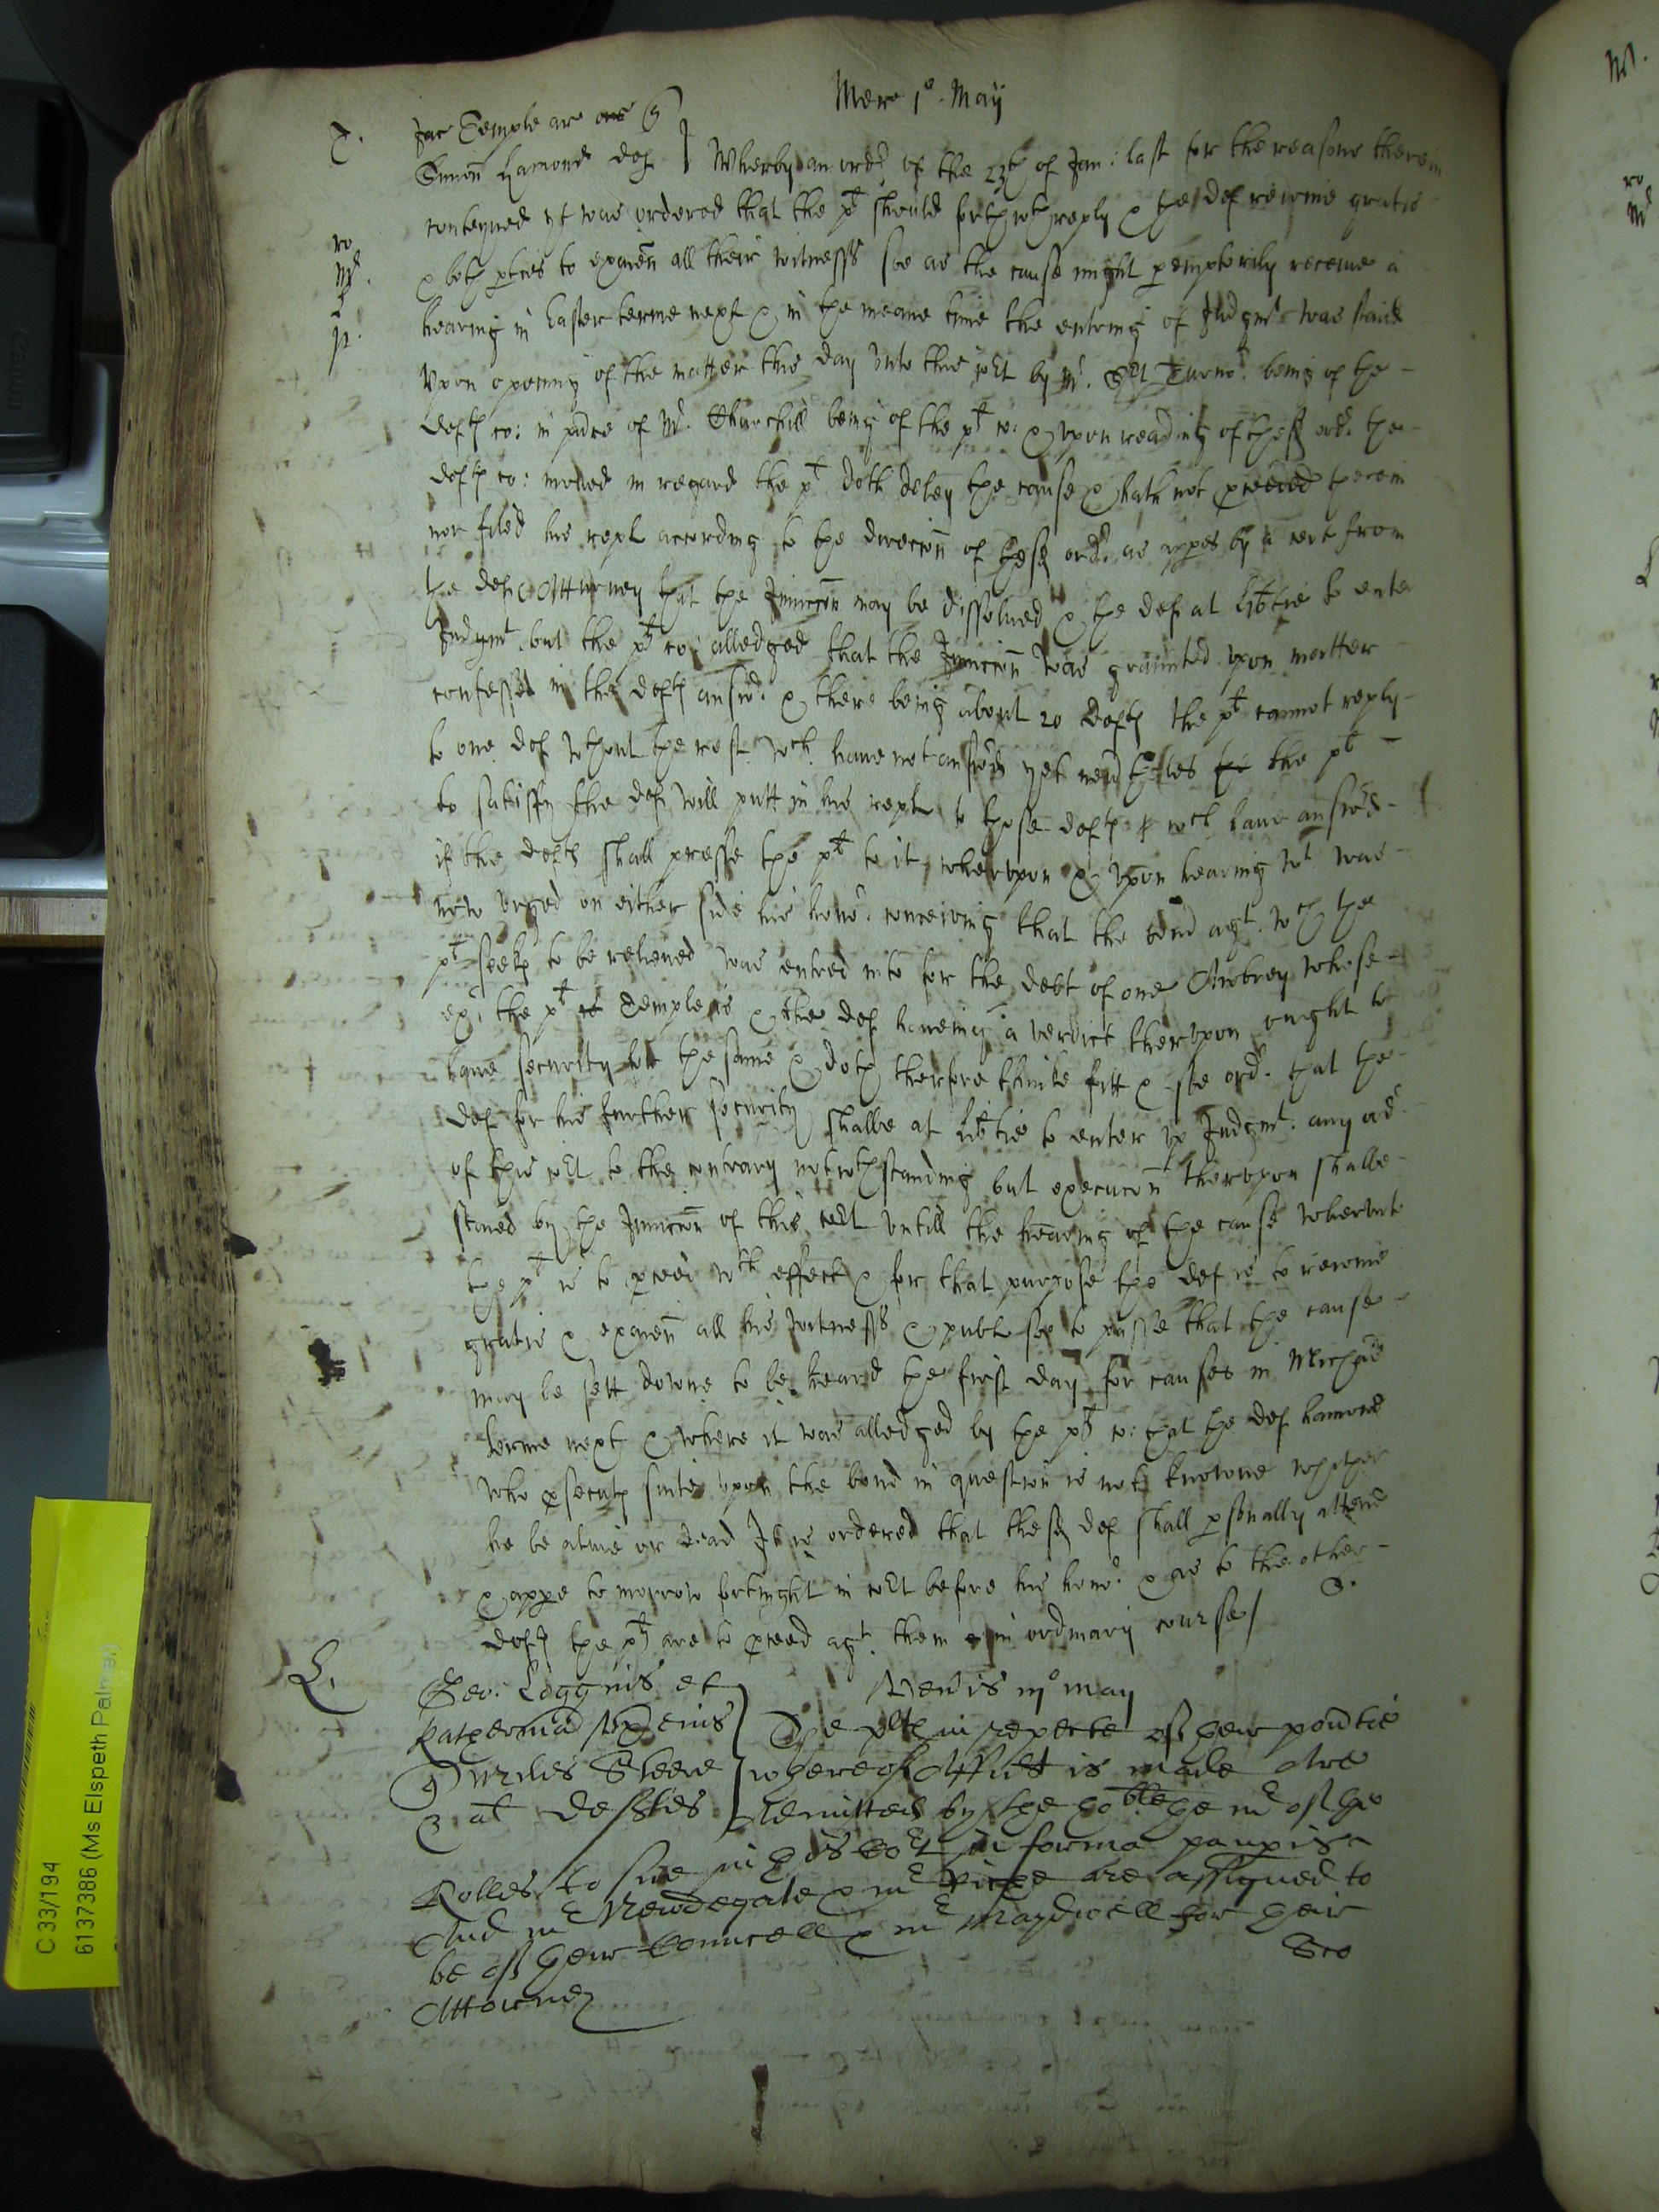 Mercr 1º. May
T. Jac Temple ar
Simon Hamond def } Wheras by an ordr of the 23th of Jan: last for the reasons therein
conteyned yt was ordered that the plt should forthwth reply & the def reioine gratis
ro
Mr
& both pties to examen all their witnesses soe as the cause might pemptorily receive a
hearing in Easter terme next & in the meane time the entring of Judgmt was staid
Upon opening of the matter this day unto this cort by Mr. Sert Turnor. being of the
defts co: in pnce of Mr. Churchill being of the plt co: & upon reading of the sd ordr. the
defts co: moved in regard the plt doth delay the cause & hath not pceeded therein
nor filed his repl according to the direccon of the sd ordr. as appes by a cert from
the def Atturney that the Iniuccon may be dissolued & the def at libtie to enter
Judgmt. but the plt co: alledged that the Iniuccon was graunted upon matter
confessed in the defts answer. & there being about 20 defts the plt cannot reply
to one def wthout the rest wch. have not answerd yet neverthelesse the plt
to satisfy the def will putt in his repl to those defts wch have answerd
if the defts shall presse the plt to it, wherupon & upon hearing wt was
now urged on either side his honor. conceiving that the bond agt. wch the
plt seeks to be relieved was entred into for the debt of one Awbrey whose
exr. the plt Temple is & the def haveing a verdict therupon ought to
have security for the same & doth therfore thinke fitt & soe ordr. that the
def for his further security shalbe at libtie to enter up Judgmt. any ordr
of this cort to the contrary notwthstanding but execucon therupon shalbe
staied by the Iniuccon of this cort untill the hearing of the cause wherunto
the plt is to pceed wth effect & for that purpose the def is to reioine
gratis & examen all his witnesses & publ soe to passe that the cause
may be sett downe to be heard the first day for causes in Michas
terme next & where it was alledged by the plt co: that the def Hamond
who psecuts suite upon the bond in question is not knowne whether
he be alive or dead It is ordered that the sd def shall psonally attend
& appe to morrow fortnight in cort before his honor. & as to the other
defts the plts are to pceed agt. them in ordinary course/
L. Geo: Loggins et
Katherina uxor eius
Quer
Miles Fleete
& al deftes } Mercr 1º may
The plts in respecte of their povertie
whereof Affidt is made Are
Admitted by the hoble the mr of the
Rolles to sue in this Cort in forma paupis
And mr Newdegate & mr are assigned to
be of their Councell & mr Maydwell for their
Attorney